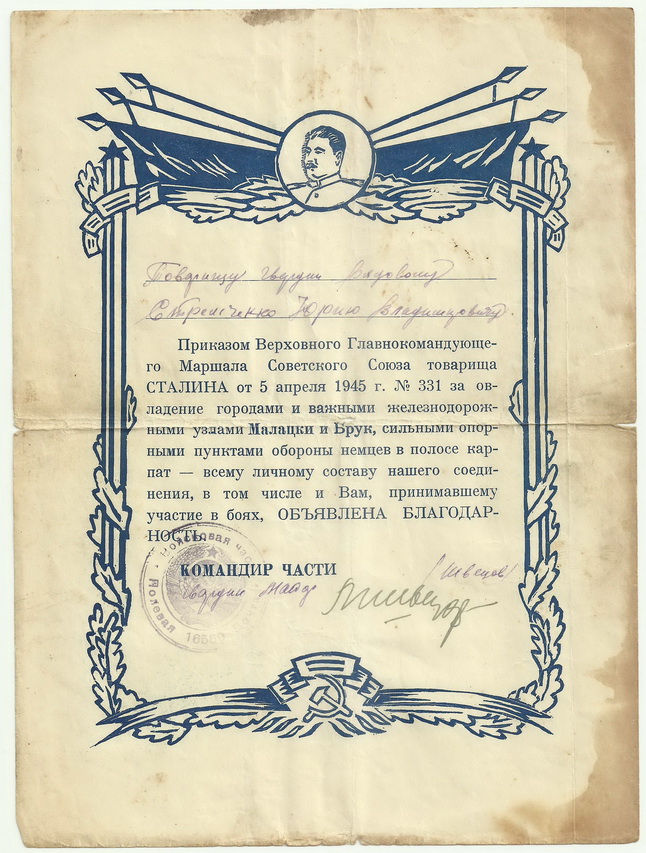 Товарищу гвардии рядовому
Стрельченко Юрию Владимировичу.
Приказом Верховного Главнокомандующе-
го Маршала Советского Союза товарища
СТАЛИНА от 5 апреля 1945 г. № 331 за ов-
ладение городами и важными железнодорож-
ными узлами Малацки и Брук, сильными опор-
ными пунктами обороны немцев в полосе кар-
пат — всему личному составу нашего соеди-
нения, в том числе и Вам, принимавшему
участие в боях, ОБЪЯВЛЕНА БЛАГОДАР-
НОСТЬ.
КОМАНДИР ЧАСТИ
гвардии майор
/Швецов/
Войсковая час
Полевая